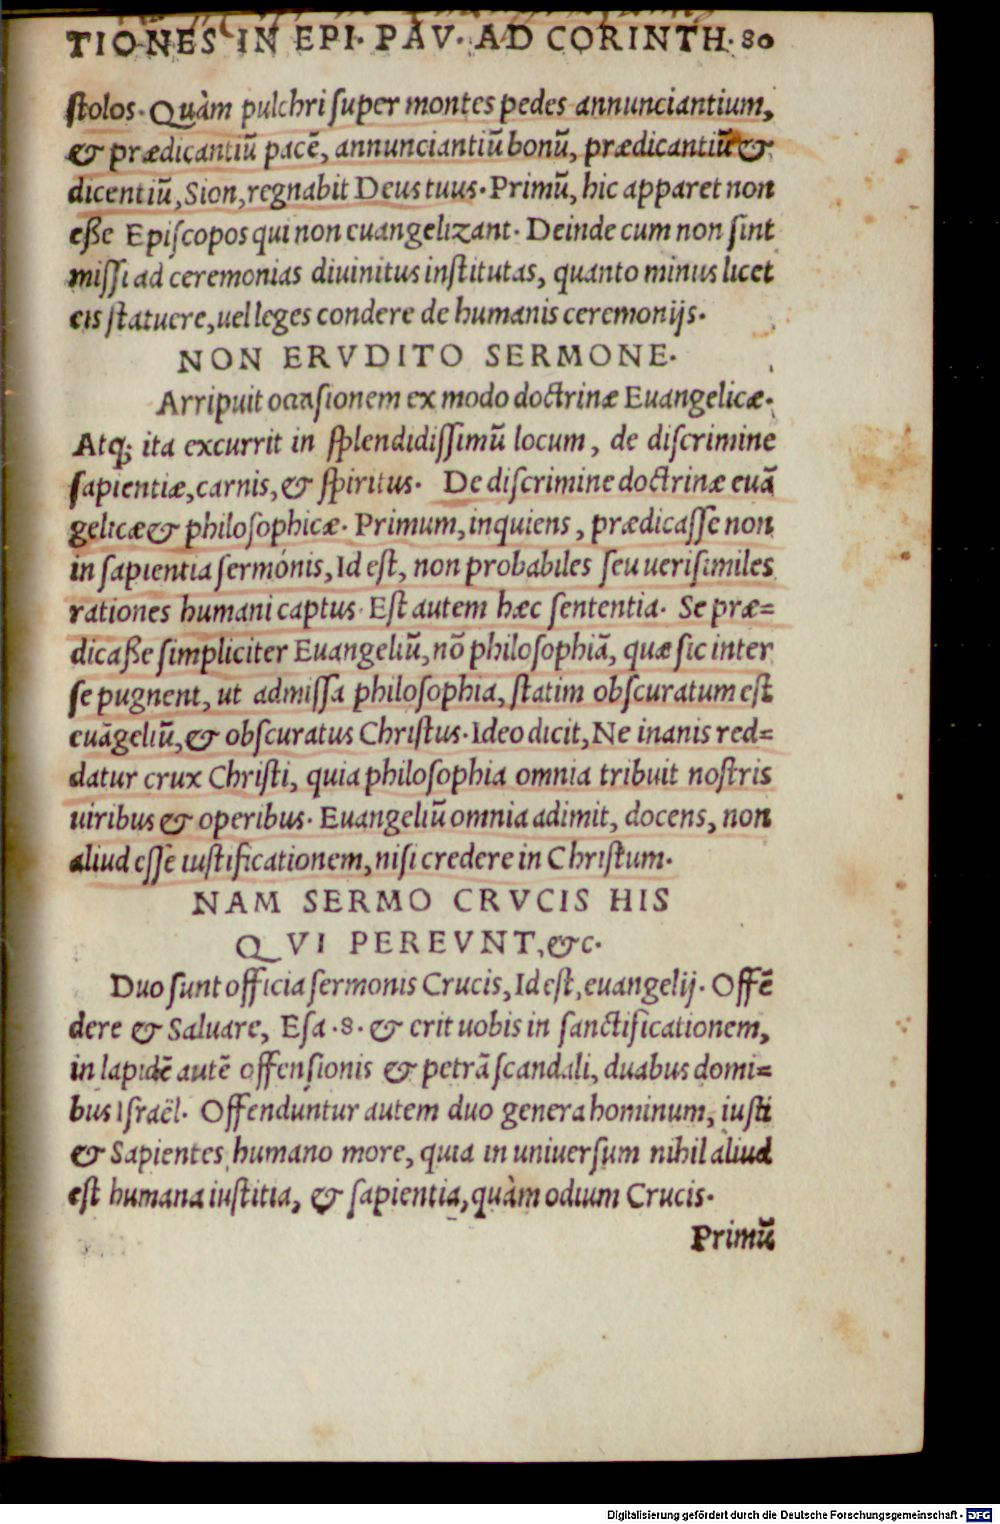 TIONES IN EPI. PAV. AD CORINTH. 80
ſtolos. Quàm pulchri ſuper montes pedes annunciantium,
& prædicantiũ pacẽ, annunciantiũ bonũ, prædicantiũ &
dicentiũ, Sion, regnabit Deus tuus. Primũ, hic apparet non
eße Epiſcopos qui non euangelizant. Deinde cum non ſint
miſſi ad ceremonias diuinitus inſtitutas, quanto minus licet
eis ſtatuere, uel leges condere de humanis ceremonijs.
NON ERVDITO SERMONE.
Arripuit occaſionem ex modo doctrinæ Euangelicæ.
Atq; ita excurrit in ſplendidiſſimũ locum, de diſcrimine
ſapientiæ, carnis, & ſpiritus. De diſcrimine doctrinæ euã
gelicæ & philoſophicæ. Primum, inquiens, prædicaſſe non
in ſapientia ſermónis, Id eſt, non probabiles ſeu ueriſimiles
rationes humani captus. Eſt autem hæc ſententia. Se præ=
dicaße ſimpliciter Euangeliũ, nõ philoſophiã, quæ ſic inter
ſe pugnent, ut admiſſa philoſophia, ſtatim obſcuratum eſt
euãgeliũ, & obſcuratus Chriſtus. Ideo dicit, Ne inanis red=
datur crux Chriſti, quia philoſophia omnia tribuit noſtris
uiribus & operibus. Euangeliũ omnia adimit, docens, non
aliud eſſe iuſtificationem, niſi credere in Chriſtum.
NAM SERMO CRVCIS HIS
QVI PEREVNT, &c.
Duo ſunt officia ſermonis Crucis, Id eſt, euangelij. Offẽ
dere & Saluare, Eſa .8. & erit uobis in ſanctificationem,
in lapidẽ autẽ offenſionis & petrã ſcandali, duabus domi=
bus Iſraël. Offenduntur autem duo genera hominum, iuſti
& Sapientes humano more, quia in uniuerſum nihil aliud
eſt humana iuſtitia, & ſapientia, quàm odium Crucis.
Primũ
Digitalisierung gefördert durch die Deutsche Forschungsgemeinschaft - DFG